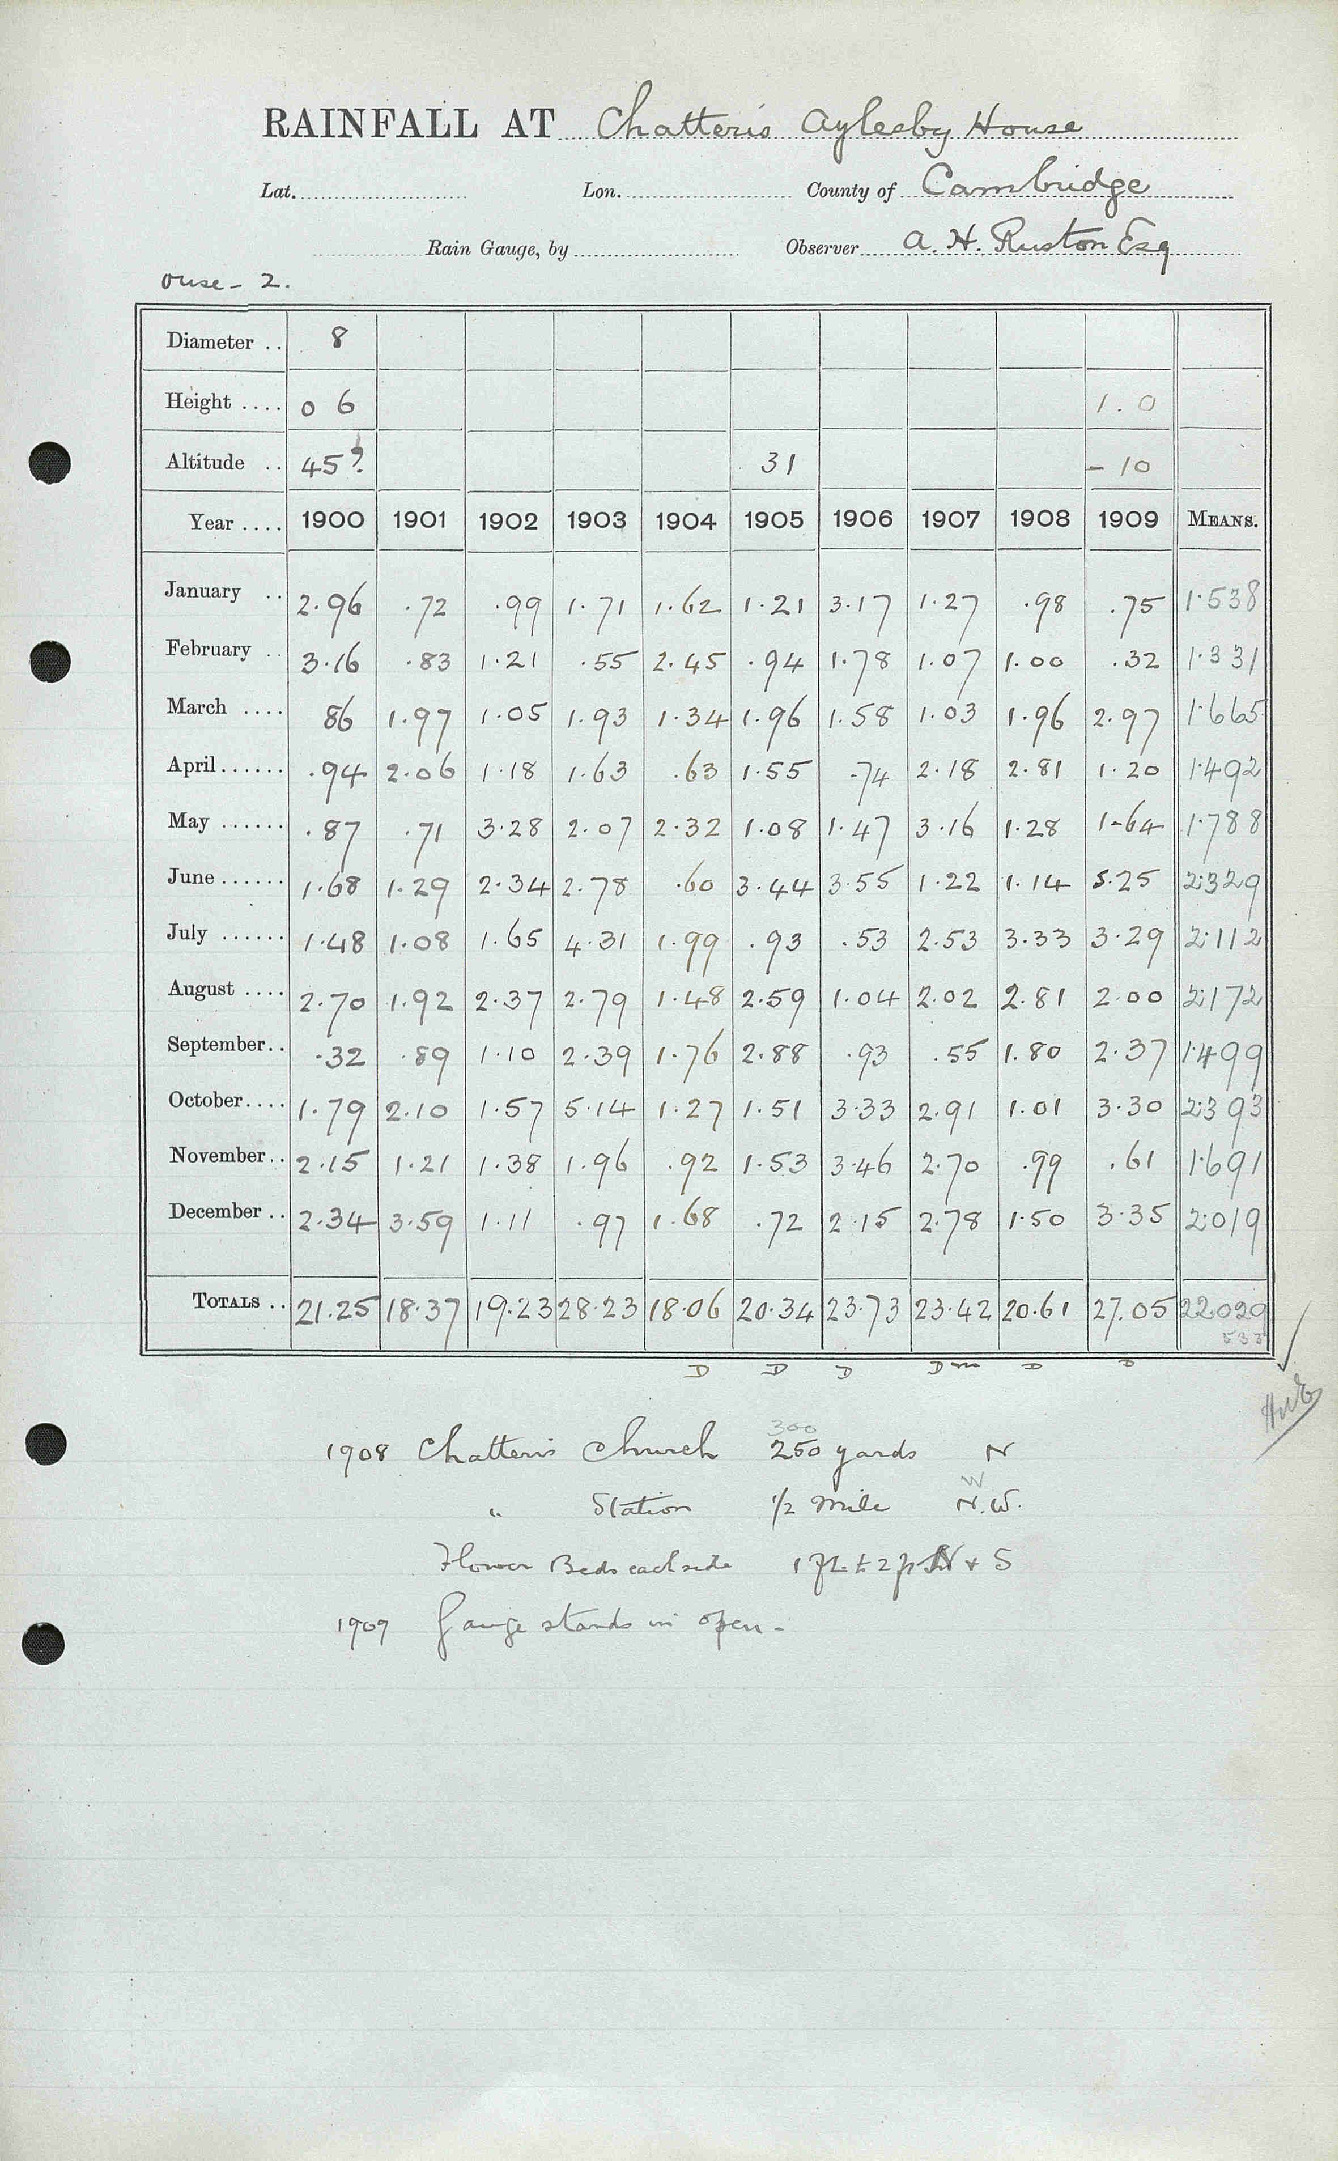 RAINFALL AT Chatteris Aylesby House
Lat. Lon. County of Cambridge
Rain Gauge, by Observer A. H. Ruston Esq
Ouse - 2.
Diameter .. 8
Height .... 0 6 1.0
Altitude .. 45? 31 - 10
Year .... 1900 1901 1902 1903 1904 1905 1906 1907 1908 1909 MEANS.
January .. 2.96 .72 .99 1.71 1.62 1.21 3.17 1.27 .98 .75 1.538
February .. 3.16 .83 1.21 .55 2.45 .94 1.78 1.07 1.00 .32 1.331
March .... 86 1.97 1.05 1.93 1.34 1.96 1.58 1.03 1.96 2.97 1.665
April ...... .94 2.06 1.18 1.63 .63 1.55 .74 2.18 2.81 1.20 1.492
May ...... .87 .71 3.28 2.07 2.32 1.08 1.47 3.16 1.28 1.64 1.788
June ...... 1.68 1.29 2.34 2.78 .60 3.44 3.55 1.22 1.14 5.25 2.329
July ...... 1.48 1.08 1.65 4.31 1.99 .93 .53 2.53 3.33 3.29 2.112
August .... 2.70 1.92 2.37 2.79 1.48 2.59 1.04 2.02 2.81 2.00 2.172
September .. .32 .89 1.10 2.39 1.76 2.88 .93 .55 1.80 2.37 1.499
October .... 1.79 2.10 1.57 5.14 1.27 1.51 3.33 2.91 1.01 3.30 2.393
November .. 2.15 1.21 1.38 1.96 .92 1.53 3.46 2.70 .99 .61 1.691
December .. 2.34 3.59 1.11 .97 1.68 .72 2.15 2.78 1.50 3.35 2.019
TOTALS .. 21.25 18.37 19.23 28.23 18.06 20.34 23.73 23.42 20.61 27.05 22.029
D D D Dm D D
300
1908 Chatteris Church 250 yards N
W
" Station 1/2 mile N.W.
Flower Beds each side 1 ft to 2 ft N + S
1909 Gauge stands in open -